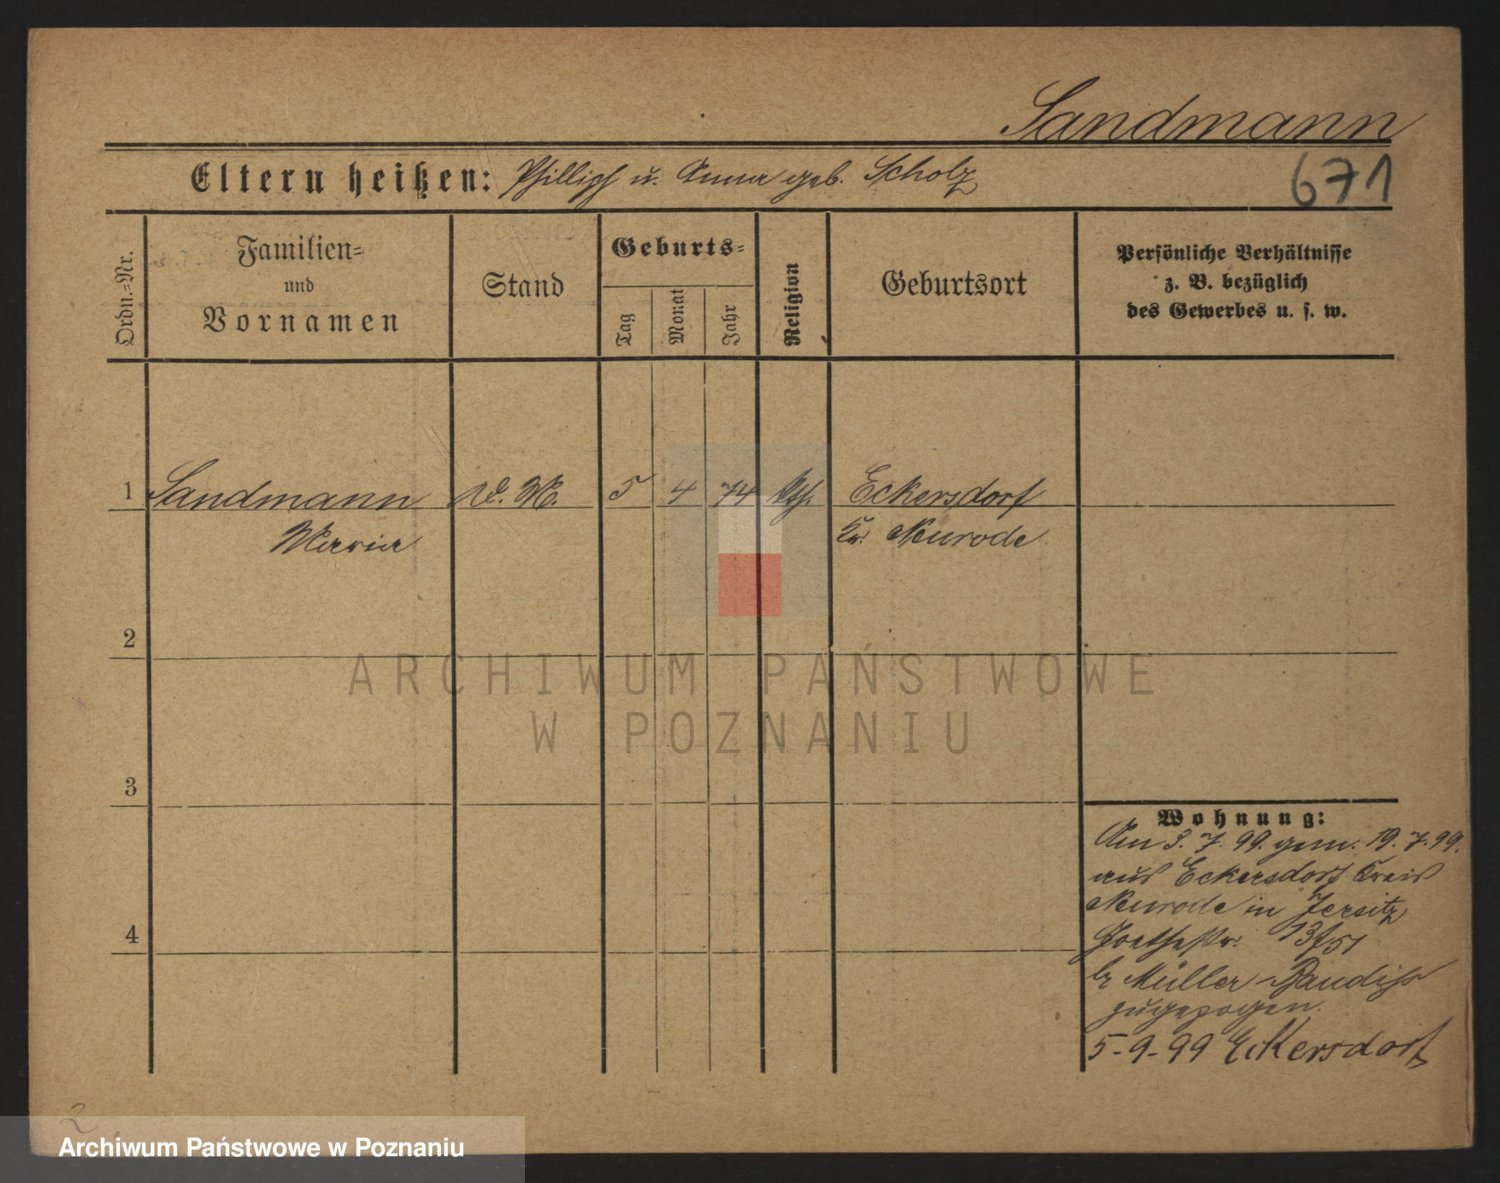 Sandmann
671
Eltern heißen: Phillipp u. Anna geb. Scholz
Ordn.-Nr.
Familien-
und
Vornamen
Stand
Geburts-
Tag
Monat
Jahr
Religion
Geburtsort
Persönliche Verhältnisse
z. B. bezüglich
des Gewerbes u. s. w.
1 Sandmann D. M. 5 4 74 kth. Eckersdorf
Maria Kr. Neurode
2
ARCHIWUM PAŃSTWOWE
W POZNANIU
3
Wohnung:
Am 3. 7. 99. gem. 19. 7. 99.
aus Eckersdorf Kreis
Neurode in Jersitz
Goethestr. 13/51
bei Müller
zugezogen.
5-9-99 Eckersdorf
4
2
Archiwum Państwowe w Poznaniu